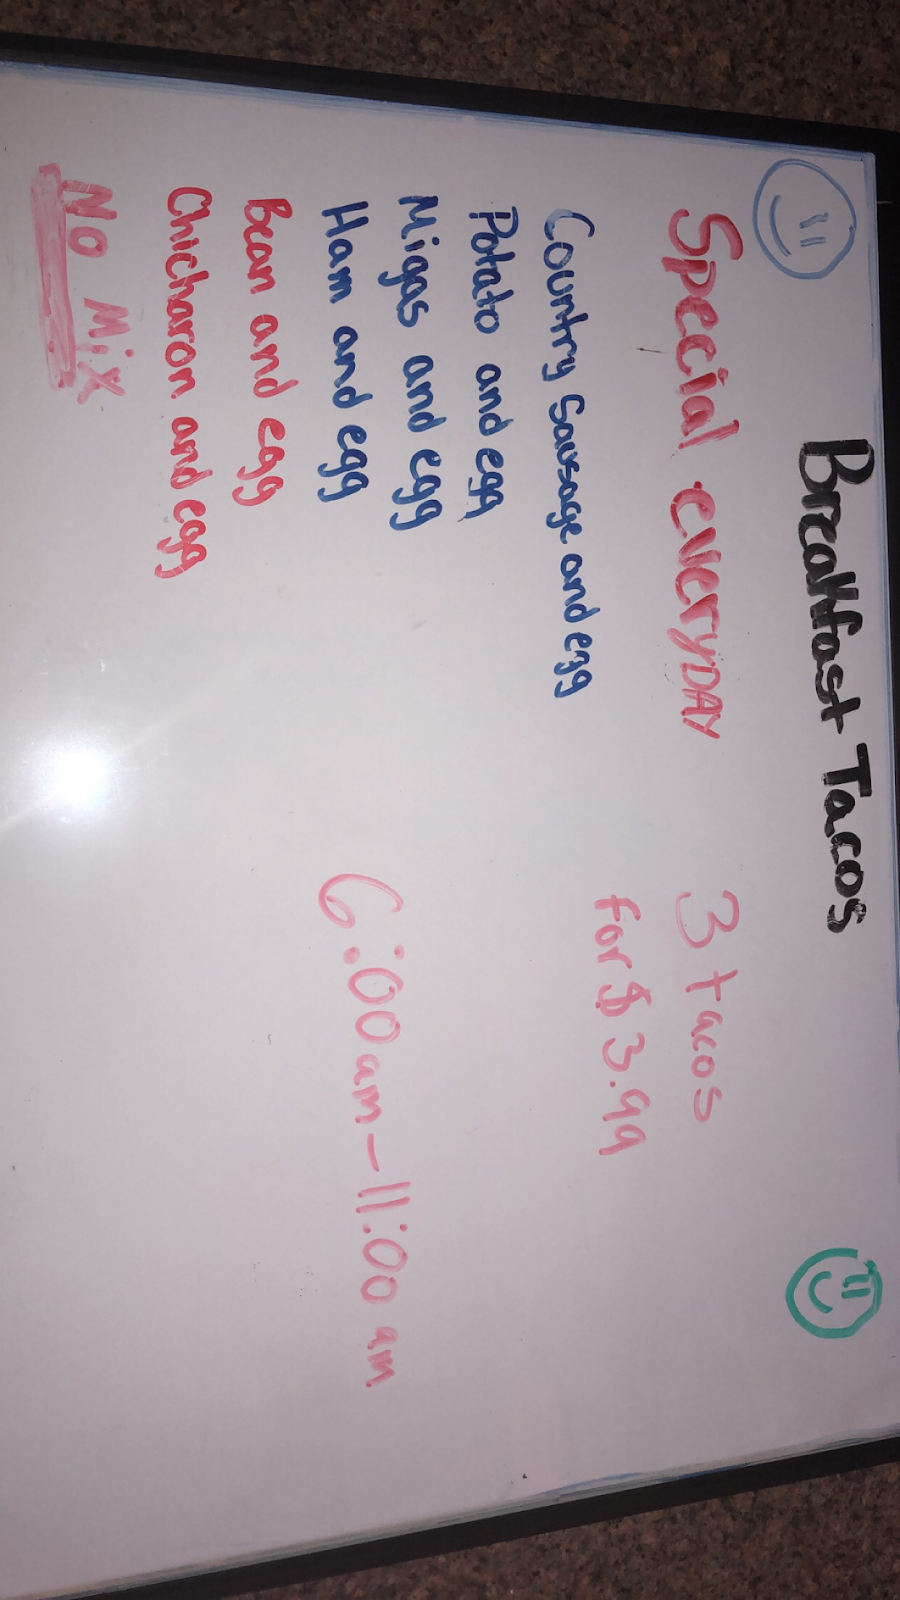 Breakfast Tacos
Special everyDAY
3 tacos
for $3.99
Country Sausage and egg
Potato and egg
Migas and egg
Ham and egg
Bean and egg
Chicharon and egg
No Mix
6:00am-11:00 am